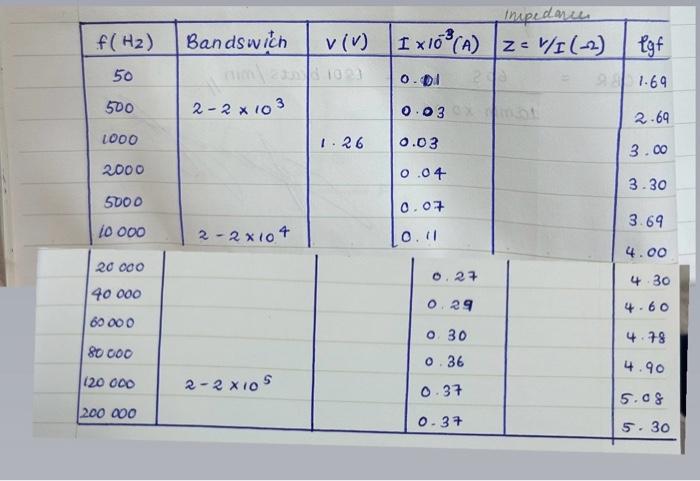 impedance
f(Hz) Bandswitch V(V) I x10⁻³(A) Z = V/I (Ω) lgf
50 0.01 1.69
500 2-2x10³ 0.03 2.69
1000 1.26 0.03 3.00
2000 0.04 3.30
5000 0.07 3.69
10 000 2-2x10⁴ 0.11 4.00
20 000 0.27 4.30
40 000 0.29 4.60
60 000 0.30 4.78
80 000 0.36 4.90
120 000 2-2x10⁵ 0.37 5.08
200 000 0.37 5.30